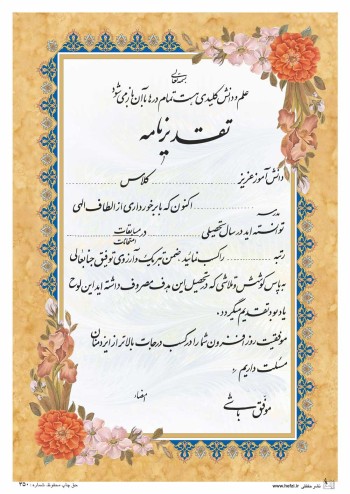 بسمه تعالی
علم و دانش کلیدی است تمام درها با آن باز می شود
تقدیرنامه
دانش آموز عزیز .................... کلاس ....................
مدرسه .................... اکنون که با برخورداری از الطاف الهی
توانسته اید در سال تحصیلی .................... در مسابقات
امتحانات
رتبه .................... را کسب نمائید، ضمن تبریک و آرزوی توفیق جنابعالی
به پاس کوشش و تلاشی که در تحصیل این هدف مصروف داشته اید این لوح
یادبود تقدیم میگردد.
موفقیت روز افزون شما را در کسب درجات بالاتر از ایزد منان
مسئلت داریم
امضاء
موفق باشی
حق چاپ محفوظ شماره: ۳۵۰
www.hefzi.ir نشر حفظی